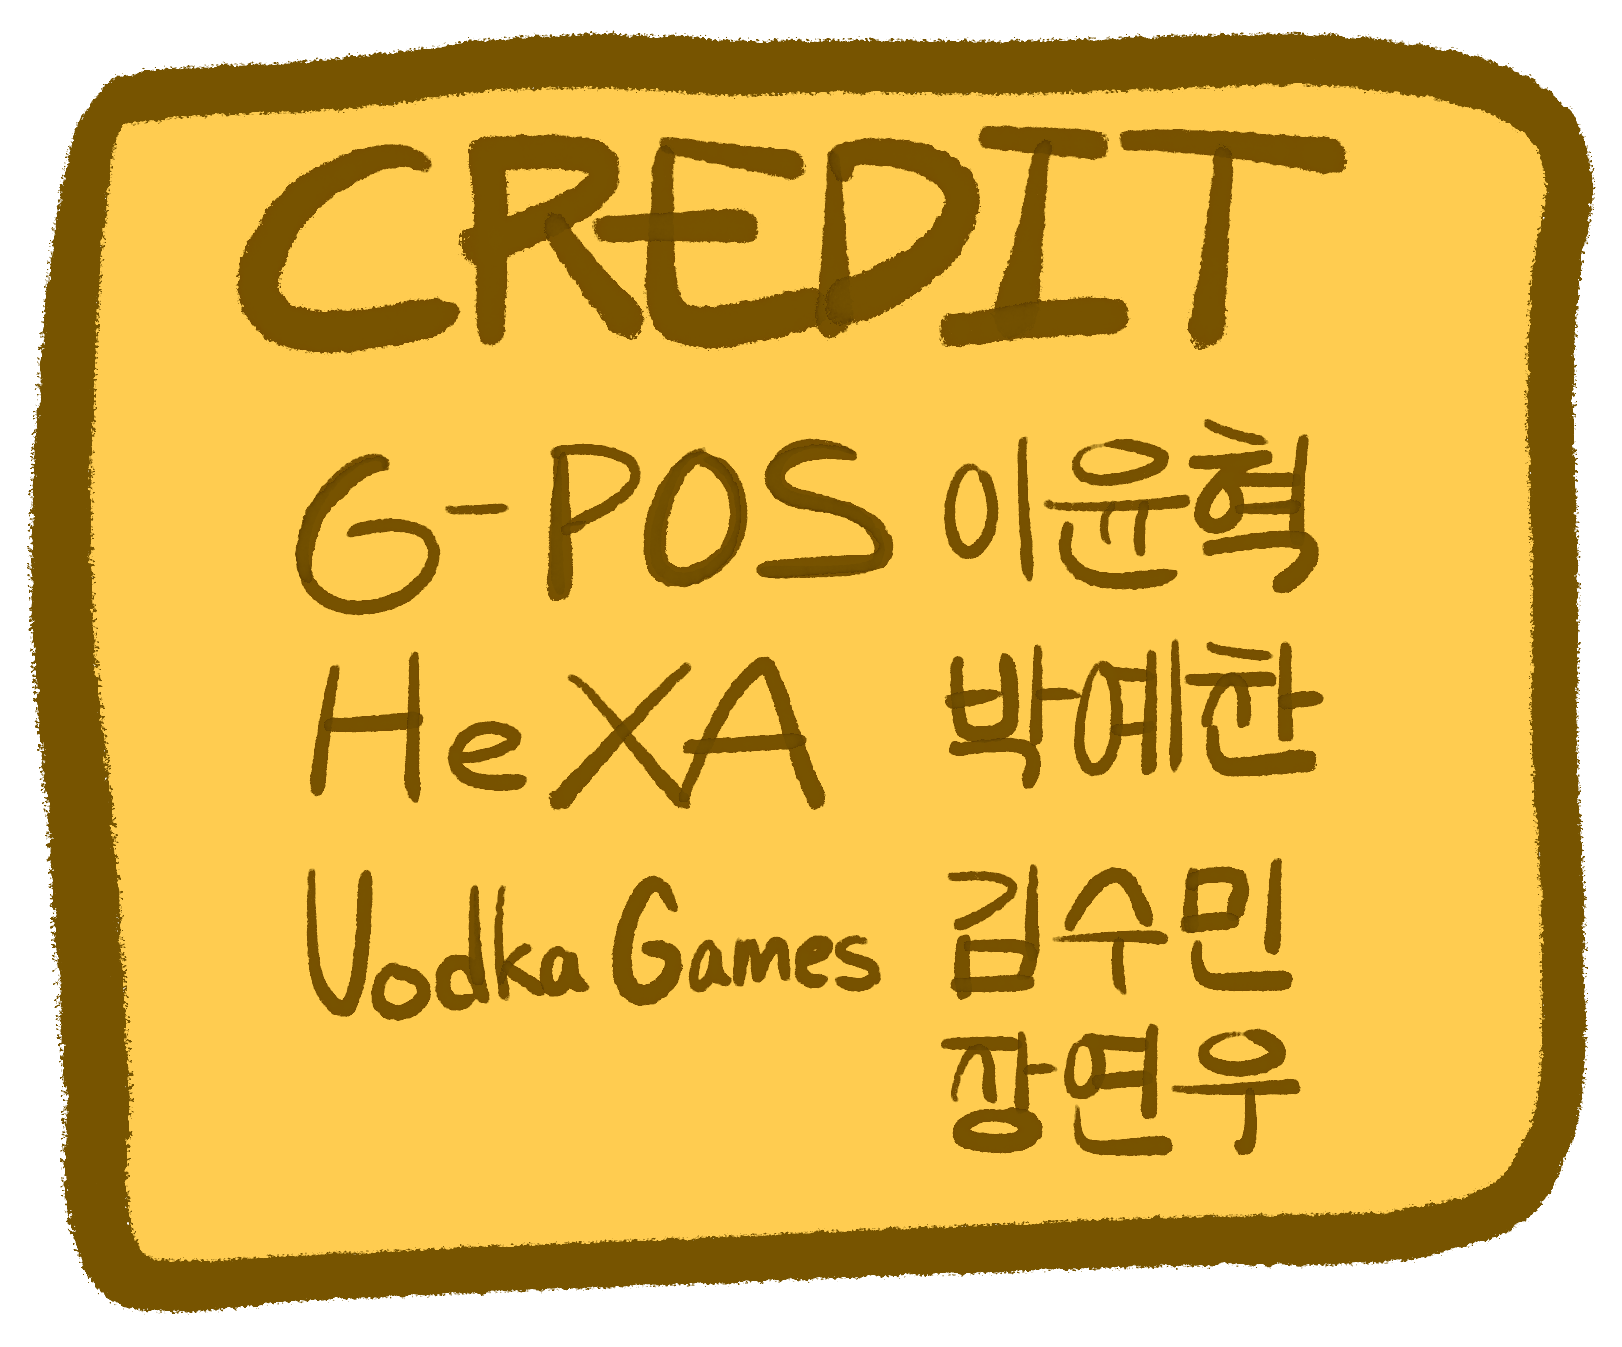 CREDIT
G-POS 이윤혁
HeXA 박예찬
Vodka Games 김수민
장연우